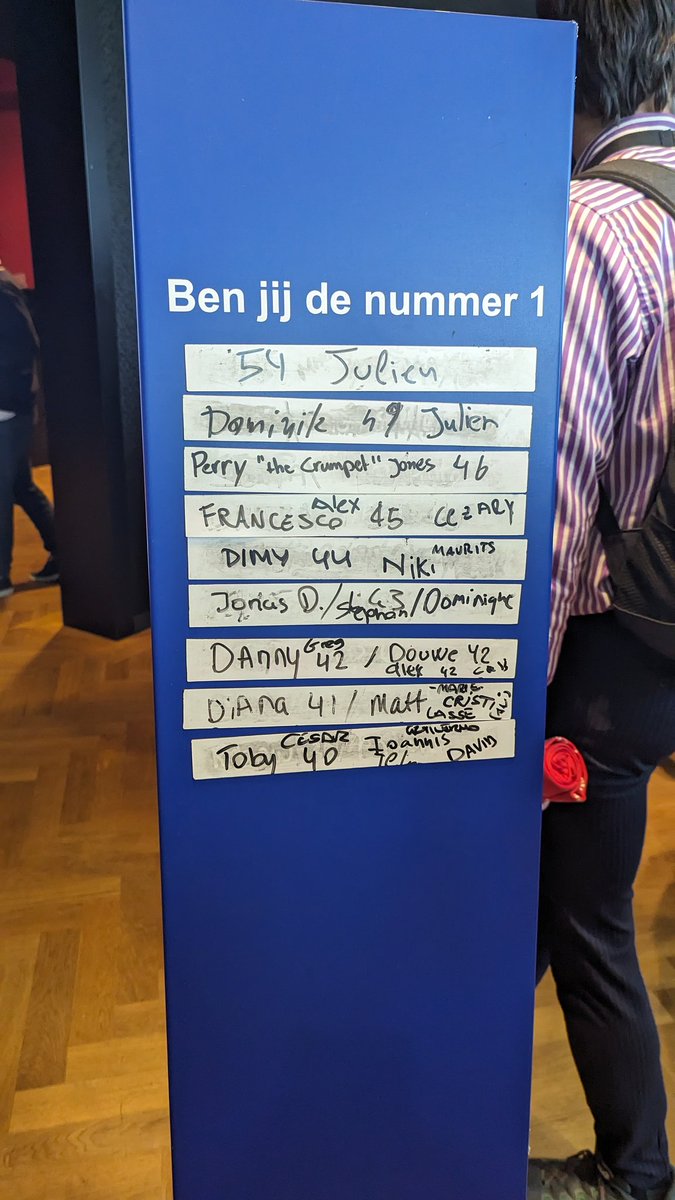 Ben jij de nummer 1
54 Julien
Dominik 49 Julien
Perry "the Crumpet" Jones 46
FRANCESCO Alex 45 CEZARY
DIMY 44 Niki MAURITS
Jonas D. / Stephan 43 / Dominique
DANNY Greg 42 / Douwe 42
alex 42
DiANA 41 / Matt - MARIE
CRISTI
LASSE
CESAR GUILERMO
Toby 40 Ioannis
DAVID